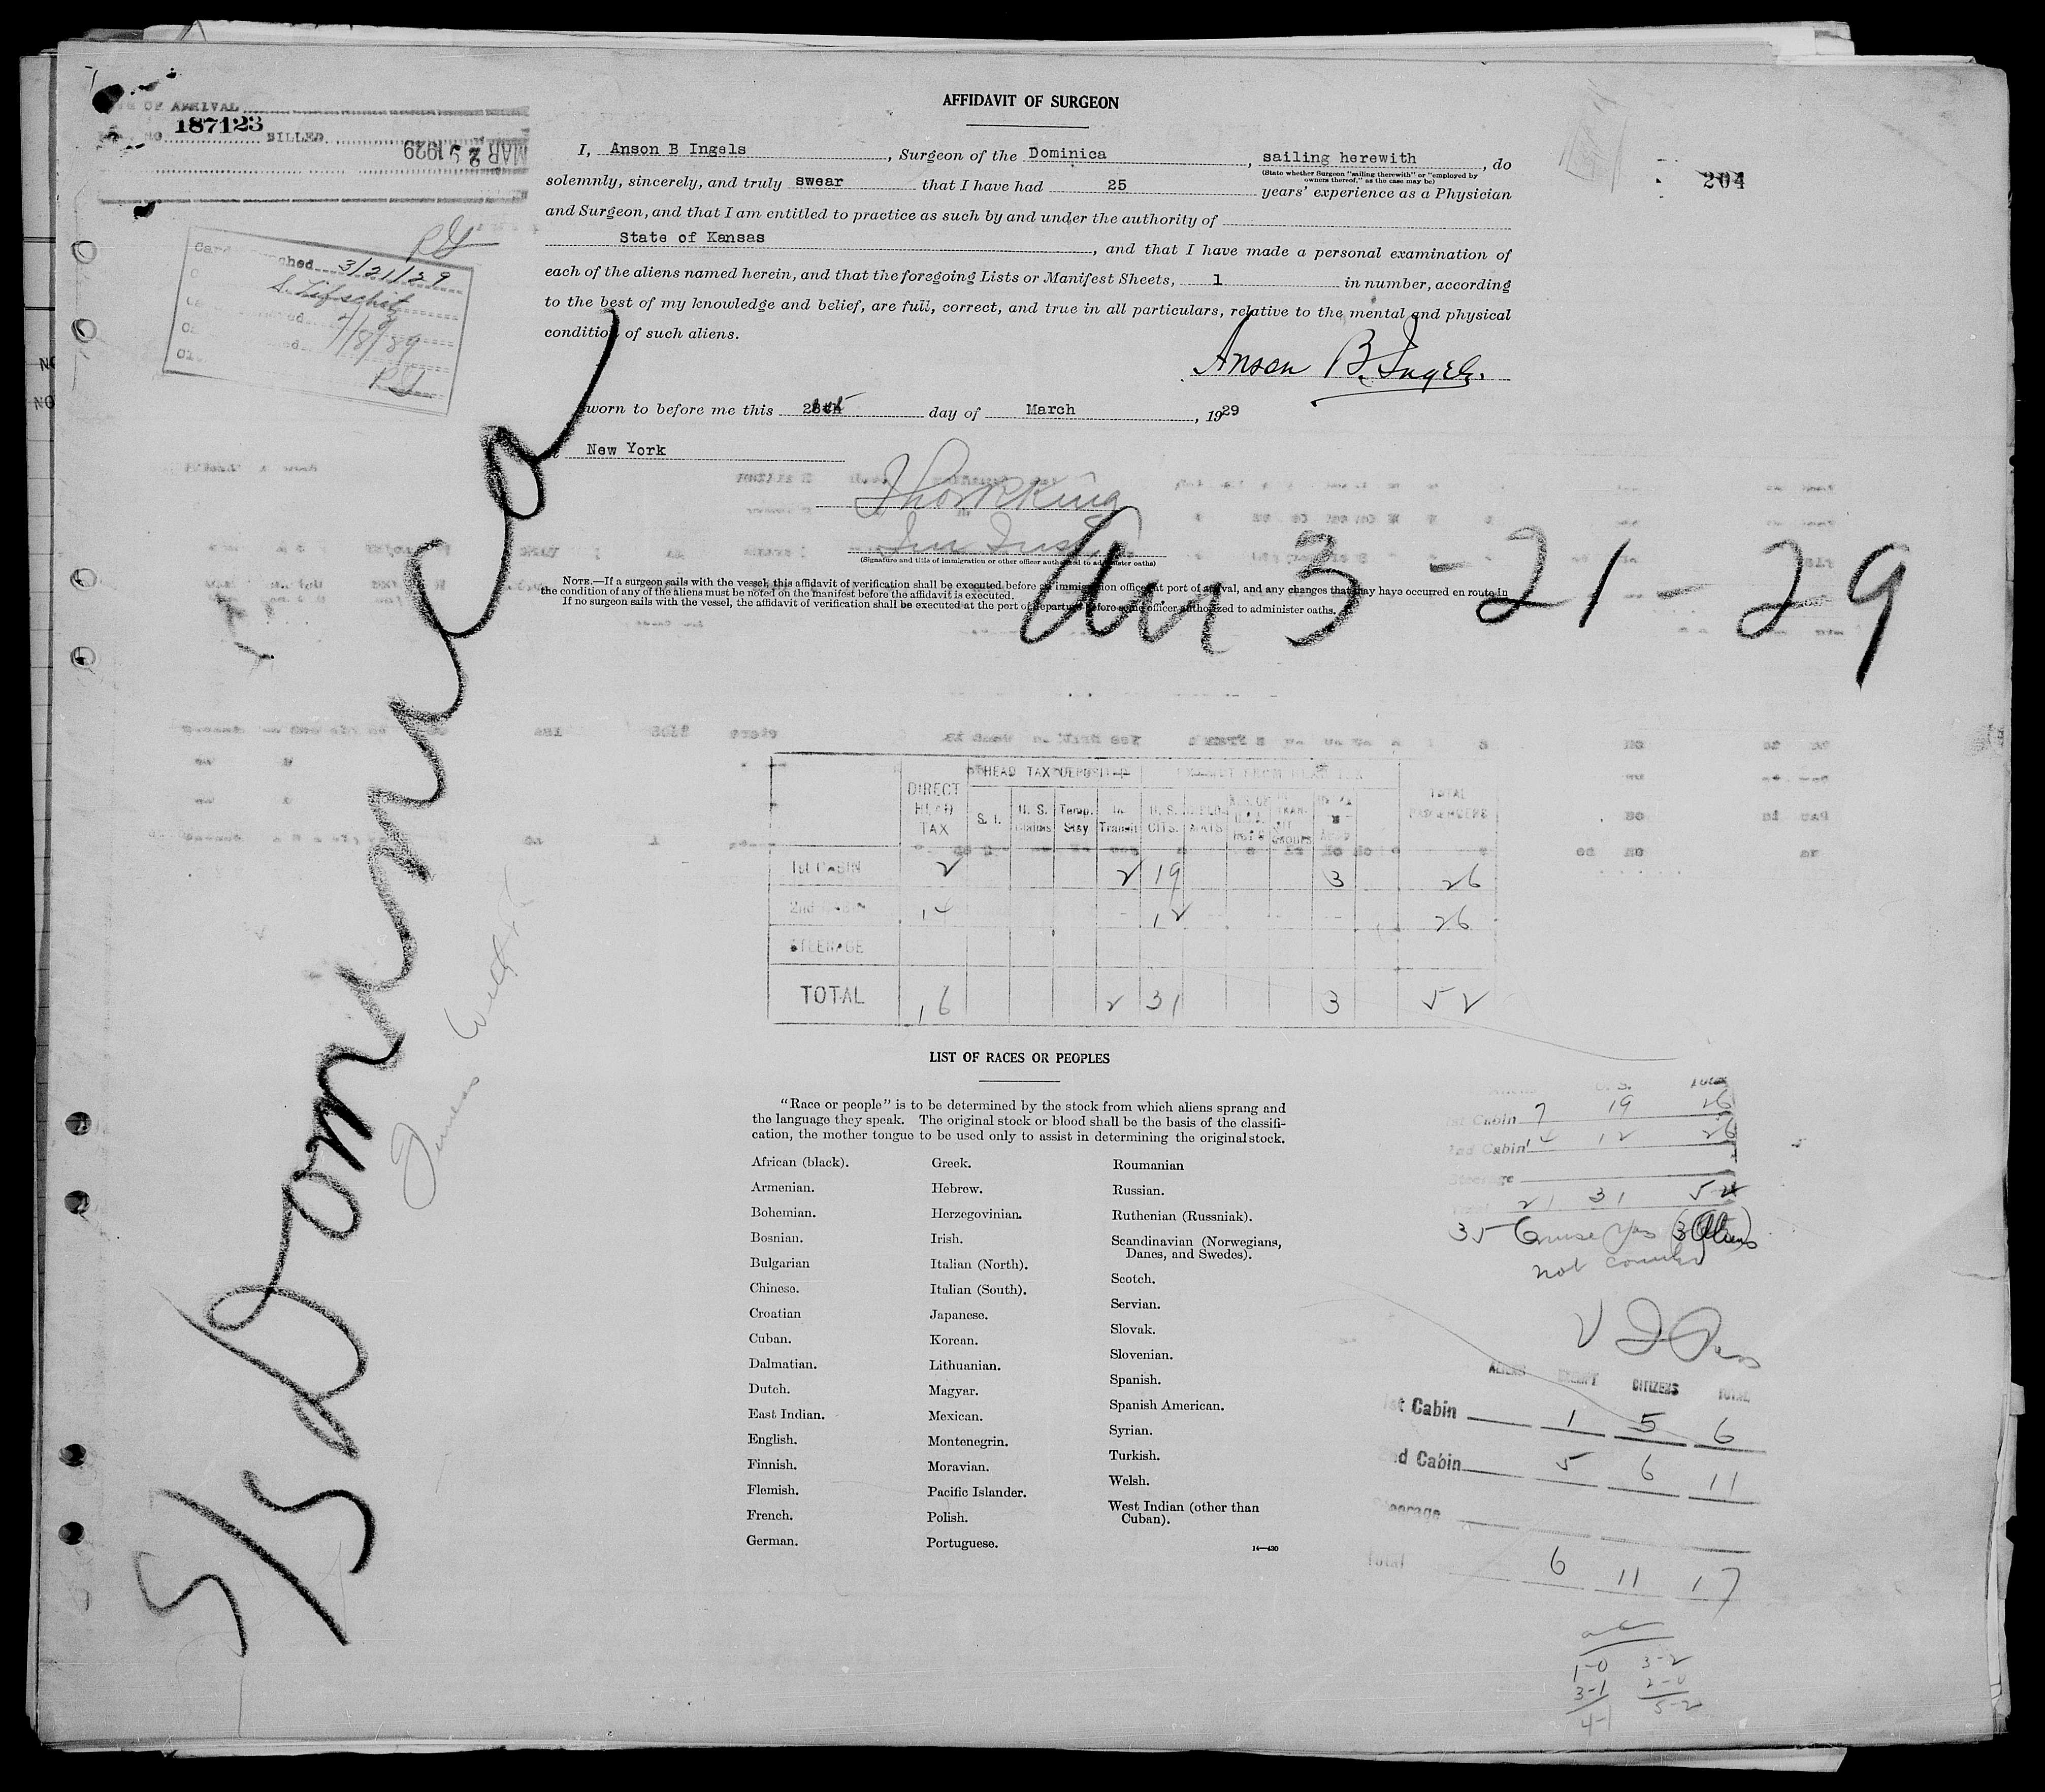 OF ARRIVAL
187123
BILLED
MAR 1929
3/21/29
AFFIDAVIT OF SURGEON
204
I, Anson B Ingels, Surgeon of the Dominica, sailing herewith, do
(State whether Surgeon "sailing therewith" or "employed by
owners thereof," as the case may be)
solemnly, sincerely, and truly swear that I have had 25 years' experience as a Physician
and Surgeon, and that I am entitled to practice as such by and under the authority of
State of Kansas, and that I have made a personal examination of
each of the aliens named herein, and that the foregoing Lists or Manifest Sheets, 1 in number, according
to the best of my knowledge and belief, are full, correct, and true in all particulars, relative to the mental and physical
condition of such aliens.
Anson B. Ingels.
worn to before me this day of March, 1929
New York
(Signature and title of immigration or other officer authorized to administer oaths)
NOTE.—If a surgeon sails with the vessel, this affidavit of verification shall be executed before an immigration officer at port of arrival, and any changes that may have occurred en route in
the condition of any of the aliens must be noted on the manifest before the affidavit is executed.
If no surgeon sails with the vessel, the affidavit of verification shall be executed at the port of departure before some officer authorized to administer oaths.
3-21-29
S/S Dominica
James
HEAD TAX DEPOSIT
DIRECT HEAD TAX S. I. U. S. Temp. Stay In Transit U. S. CITS. TOTAL PASSENGERS
1st CABIN 2 2 19 3 26
2nd 14 12 26
STEERAGE
TOTAL 16 2 31 3 52
LIST OF RACES OR PEOPLES
"Race or people" is to be determined by the stock from which aliens sprang and
the language they speak. The original stock or blood shall be the basis of the classifi-
cation, the mother tongue to be used only to assist in determining the original stock.
African (black).
Armenian.
Bohemian.
Bosnian.
Bulgarian
Chinese.
Croatian
Cuban.
Dalmatian.
Dutch.
East Indian.
English.
Finnish.
Flemish.
French.
German.
Greek.
Hebrew.
Herzegovinian.
Irish.
Italian (North).
Italian (South).
Japanese.
Korean.
Lithuanian.
Magyar.
Mexican.
Montenegrin.
Moravian.
Pacific Islander.
Polish.
Portuguese.
Roumanian
Russian.
Ruthenian (Russniak).
Scandinavian (Norwegians,
Danes, and Swedes).
Scotch.
Servian.
Slovak.
Slovenian.
Spanish.
Spanish American.
Syrian.
Turkish.
Welsh.
West Indian (other than
Cuban).
14—430
U. S. Total
1st Cabin 7 19 26
2nd Cabin 14 12 26
Steerage
21 31 52
35 Cruise (3 Aliens)
not
ALIENS EXEMPT CITIZENS TOTAL
1st Cabin 1 5 6
2nd Cabin 5 6 11
Steerage
Total 6 11 17
1-0 3-2
3-1 2-0
4-1 5-2